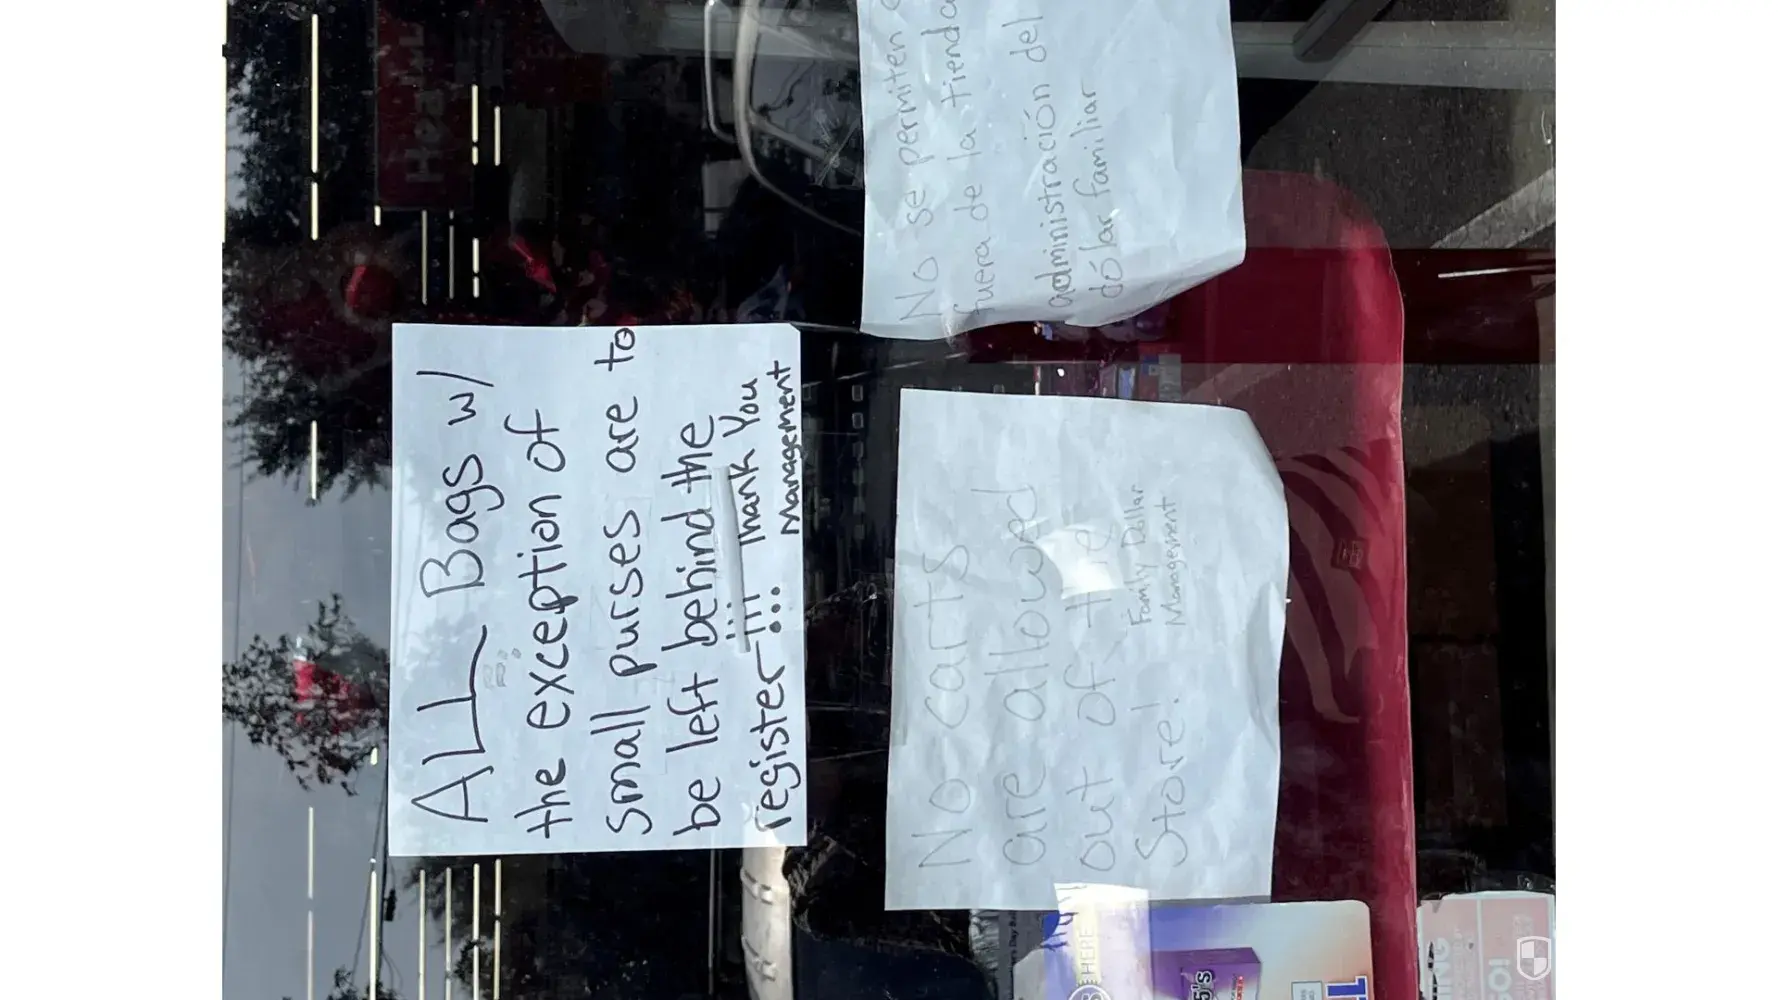 ALL Bags w/
the exception of
small purses are to
be left behind the
register!!! Thank You
Management
No se permiten
fuera de la tienda
administración del
dólar familiar
No carts
are allowed
out of the
Store!
Family Dollar
Management
HERE
5's